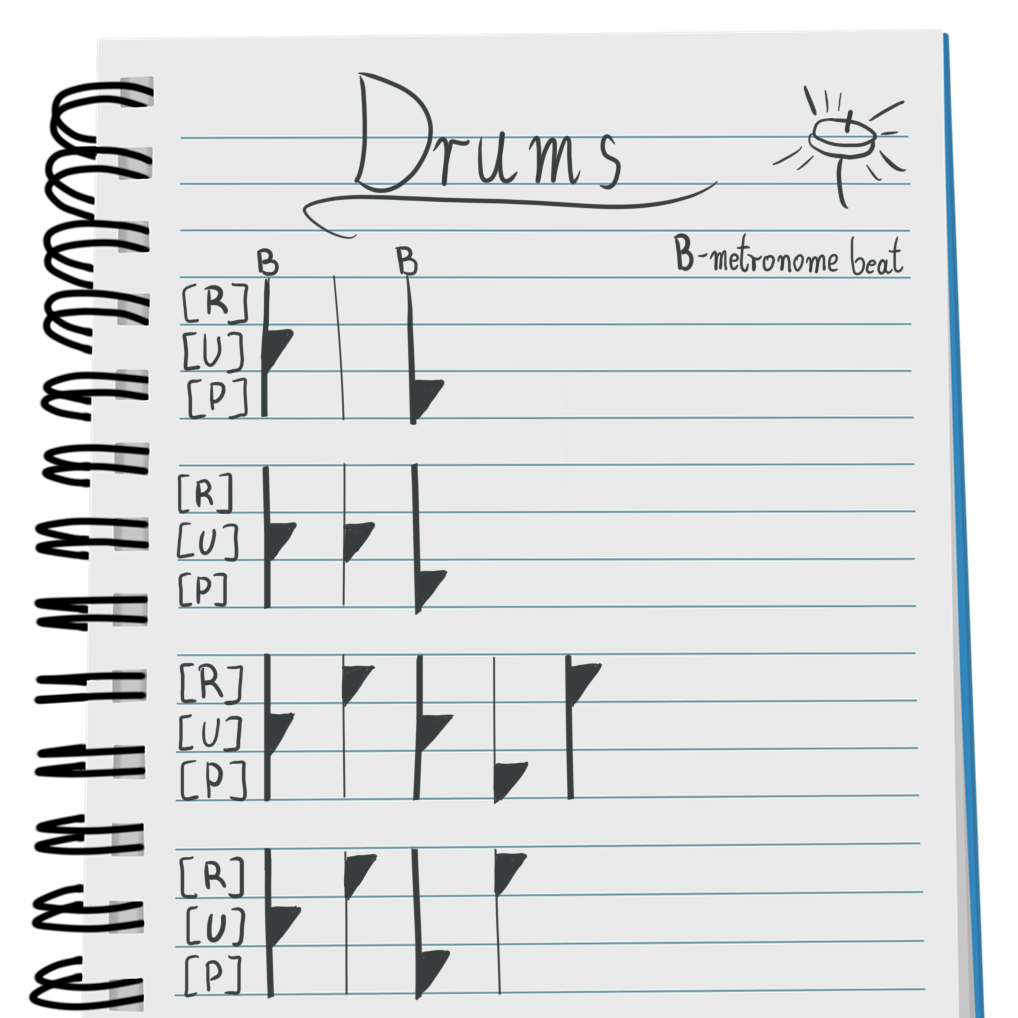 Drums
B-metronome beat
B B
[R]
[U]
[P]
[R]
[U]
[P]
[R]
[U]
[P]
[R]
[U]
[P]